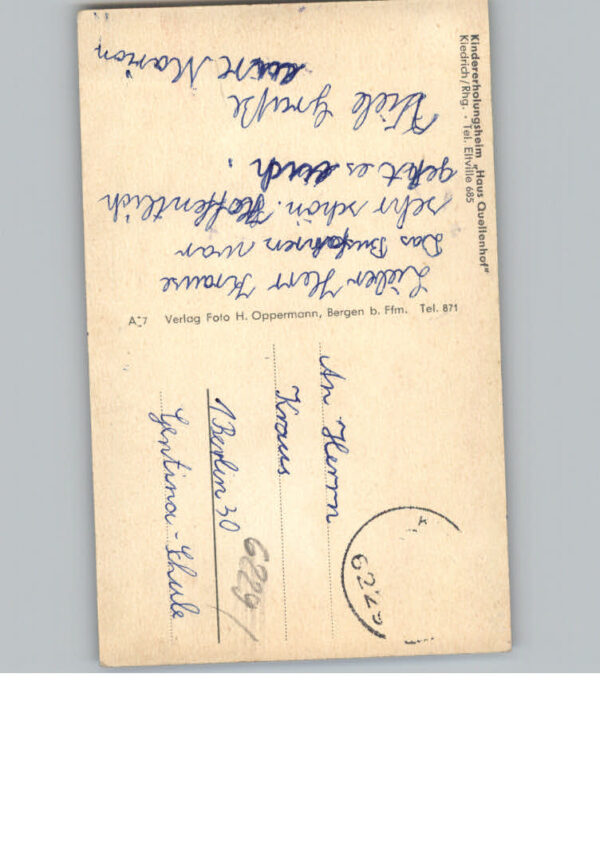 Kindererholungsheim „Haus Quellenhof“
Kiedrich/Rhg. · Tel. Eltville 685
Lieber Herr Krause
Das Busfahren war
sehr schön. Hoffentlich
geht es euch.
Viele Grüße
eure Marion
A-7 Verlag Foto H. Oppermann, Bergen b. Ffm. Tel. 871
An Herrn
Kraus
1 Berlin 30
Gentina-Schule
6229/
6229